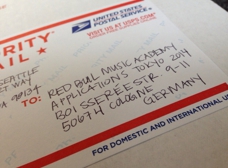 UNITED STATES
POSTAL SERVICE
VISIT US AT USPS.COM
RITY
AIL
SEATTLE
ST WAY
WA 98134
TO:
RED BULL MUSIC ACADEMY
APPLICATIONS TOKYO 2014
BOISSEREESTR. 9-11
50674 COLOGNE
GERMANY
FOR DOMESTIC AND INTERNATIONAL U